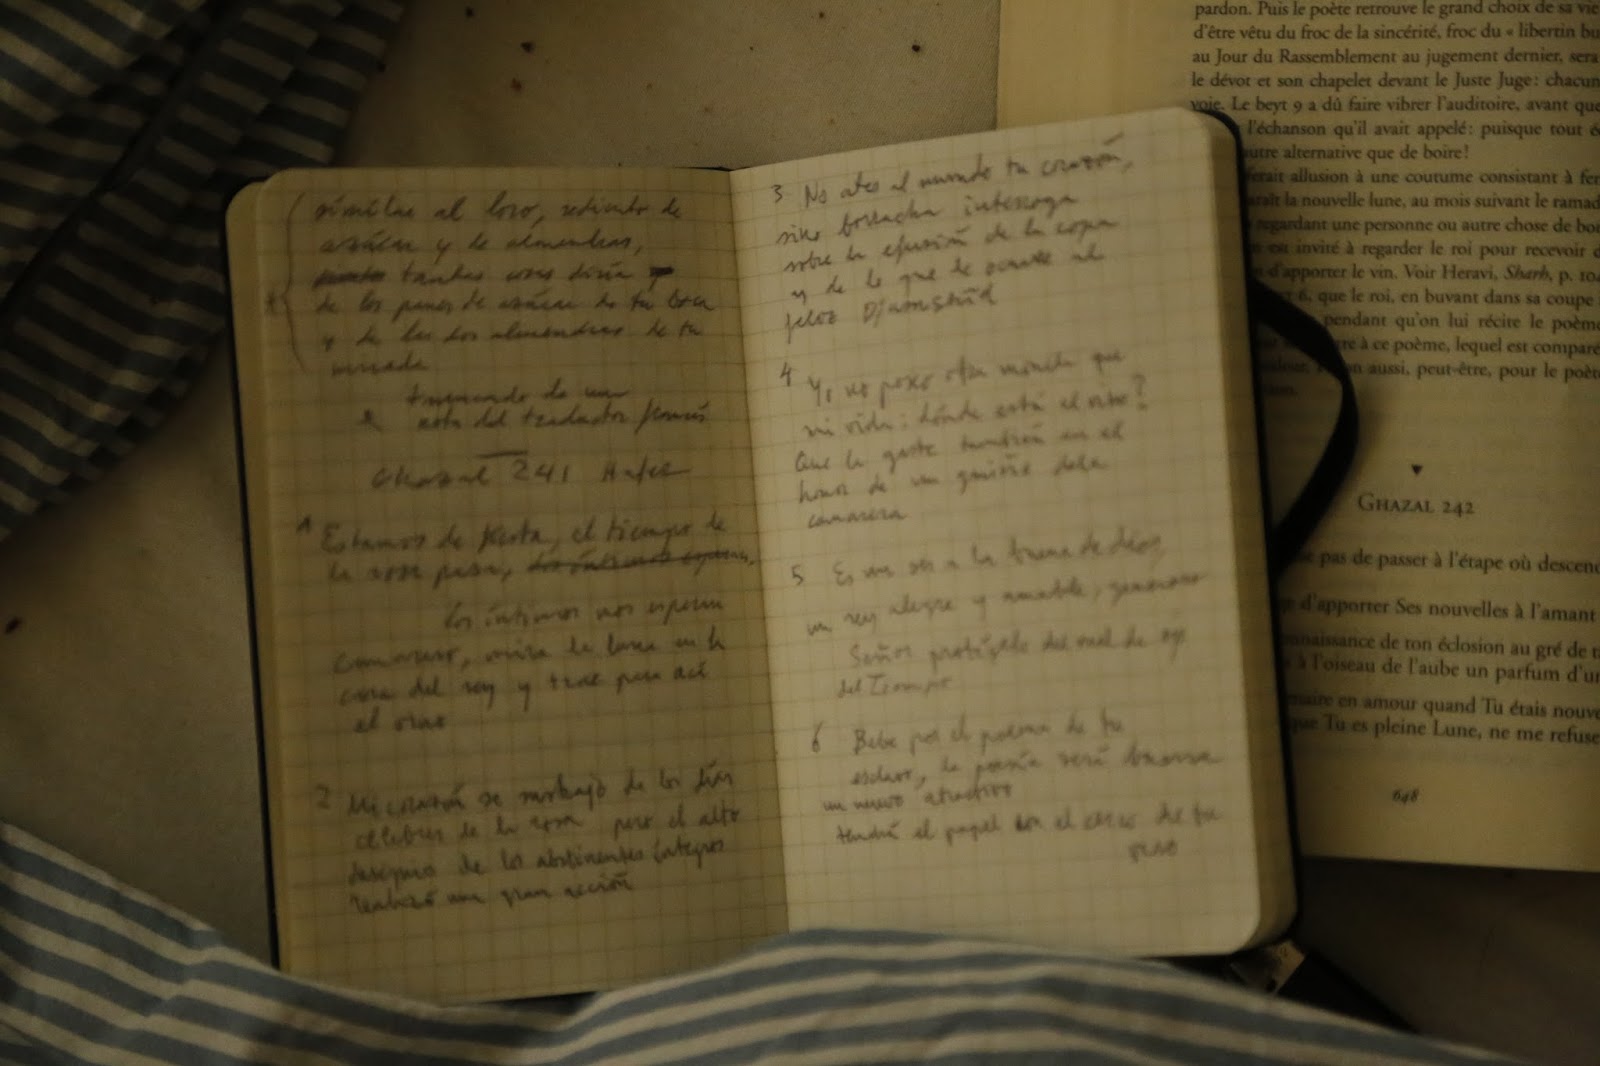 similar al loro, sediento de
azúcar y de almendras,
tantas cosas diría
de los panes de azúcar de tu boca
y de las dos almendras de tu
mirada
* tomando de una
nota del traductor francés
Ghazal 241 Hafez
1 Estamos de fiesta, el tiempo de
la rosa pasa, los íntimos esperan,
los íntimos nos esperan
camarero, mira la luna en la
cara del rey y trae para acá
el vino
2 Mi corazón se de los días
célebres de la rosa pero el alto
designio de los abstinentes íntegros
realizó una gran acción
3 No ates al mundo tu corazón,
sino borracha interroga
sobre la efusión de la copa
y de lo que le ocurre al
feliz Djamshid
4 Yo no poseo otra moneda que
mi vida: dónde está el vino?
Que la gaste también en el
honor de un guiño de la
camarera
5 Es una vez a la buena de dios
un rey alegre y amable, generoso
Señor protégelo del mal de ojo
del Tiempo
6 Bebe por el poema de tu
esclavo, la poesía será buena
un nuevo atractivo
tendrá el papel con el cerco de tu
vino
pardon. Puis le poète retrouve le grand choix de sa vie
d'être vêtu du froc de la sincérité, froc du « libertin bu
au Jour du Rassemblement au jugement dernier, sera
le dévot et son chapelet devant le Juste Juge : chacun
voie. Le beyt 9 a dû faire vibrer l'auditoire, avant que
l'échanson qu'il avait appelé : puisque tout é
autre alternative que de boire !
ferait allusion à une coutume consistant à fer
araît la nouvelle lune, au mois suivant le ramad
regardant une personne ou autre chose de bo
est invité à regarder le roi pour recevoir d
d'apporter le vin. Voir Heravi, Sharh, p. 10
6, que le roi, en buvant dans sa coupe
pendant qu'on lui récite le poème
re à ce poème, lequel est comparé
on aussi, peut-être, pour le poèt
GHAZAL 242
pas de passer à l'étape où descend
d'apporter Ses nouvelles à l'amant
nnaissance de ton éclosion au gré de t
à l'oiseau de l'aube un parfum d'u
naire en amour quand Tu étais nouve
que Tu es pleine Lune, ne me refuse
648